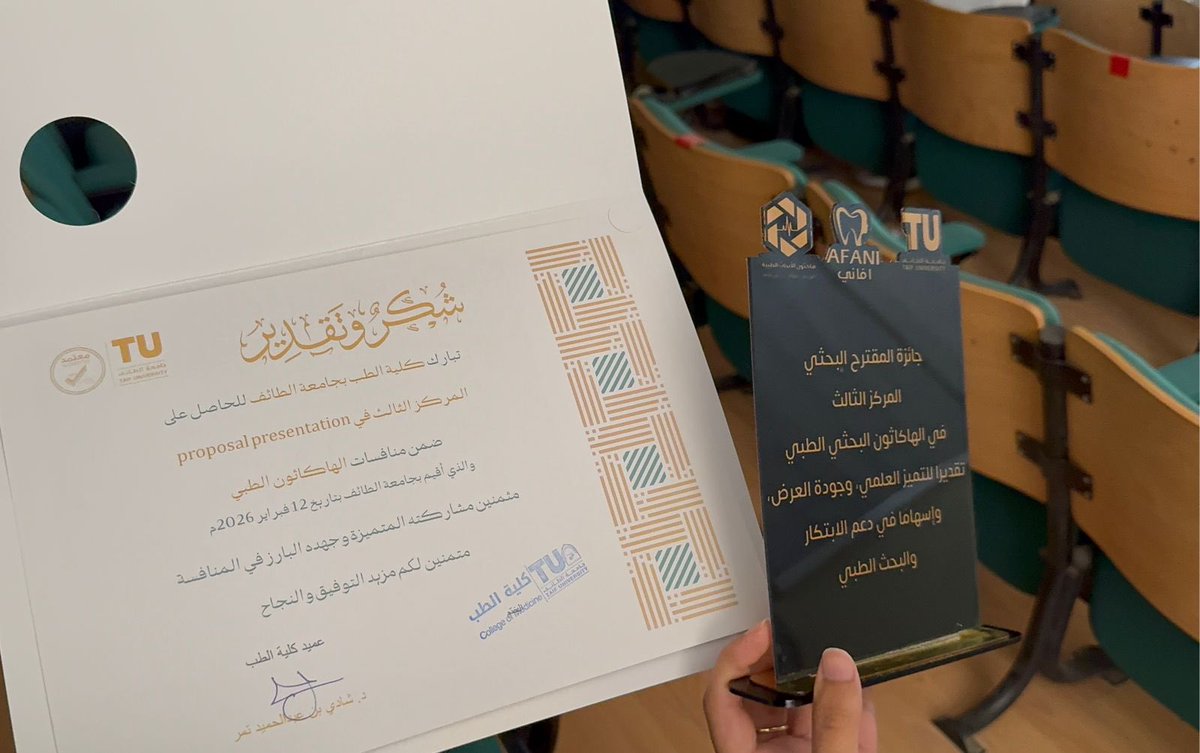 معتمد
TU
جامعة الطائف
TAIF UNIVERSITY
شكر وتقدير
تبارك كلية الطب بجامعة الطائف للحاصل على
المركز الثالث في proposal presentation
ضمن منافسات الهاكاثون الطبي
والذي أقيم بجامعة الطائف بتاريخ 12 فبراير 2026م
مثمنين مشاركته المتميزة وجهده البارز في المنافسة
متمنين لكم مزيد التوفيق والنجاح
عميد كلية الطب
د. شادي بن عبدالحميد تمر
TU
جامعة الطائف
TAIF UNIVERSITY
كلية الطب
College of Medicine
هاكاثون الأبحاث الطبية
AFANI
افاني
TU
جامعة الطائف
TAIF UNIVERSITY
جائزة المقترح البحثي
المركز الثالث
في الهاكاثون البحثي الطبي
تقديرا للتميز العلمي، وجودة العرض،
وإسهاما في دعم الابتكار
والبحث الطبي